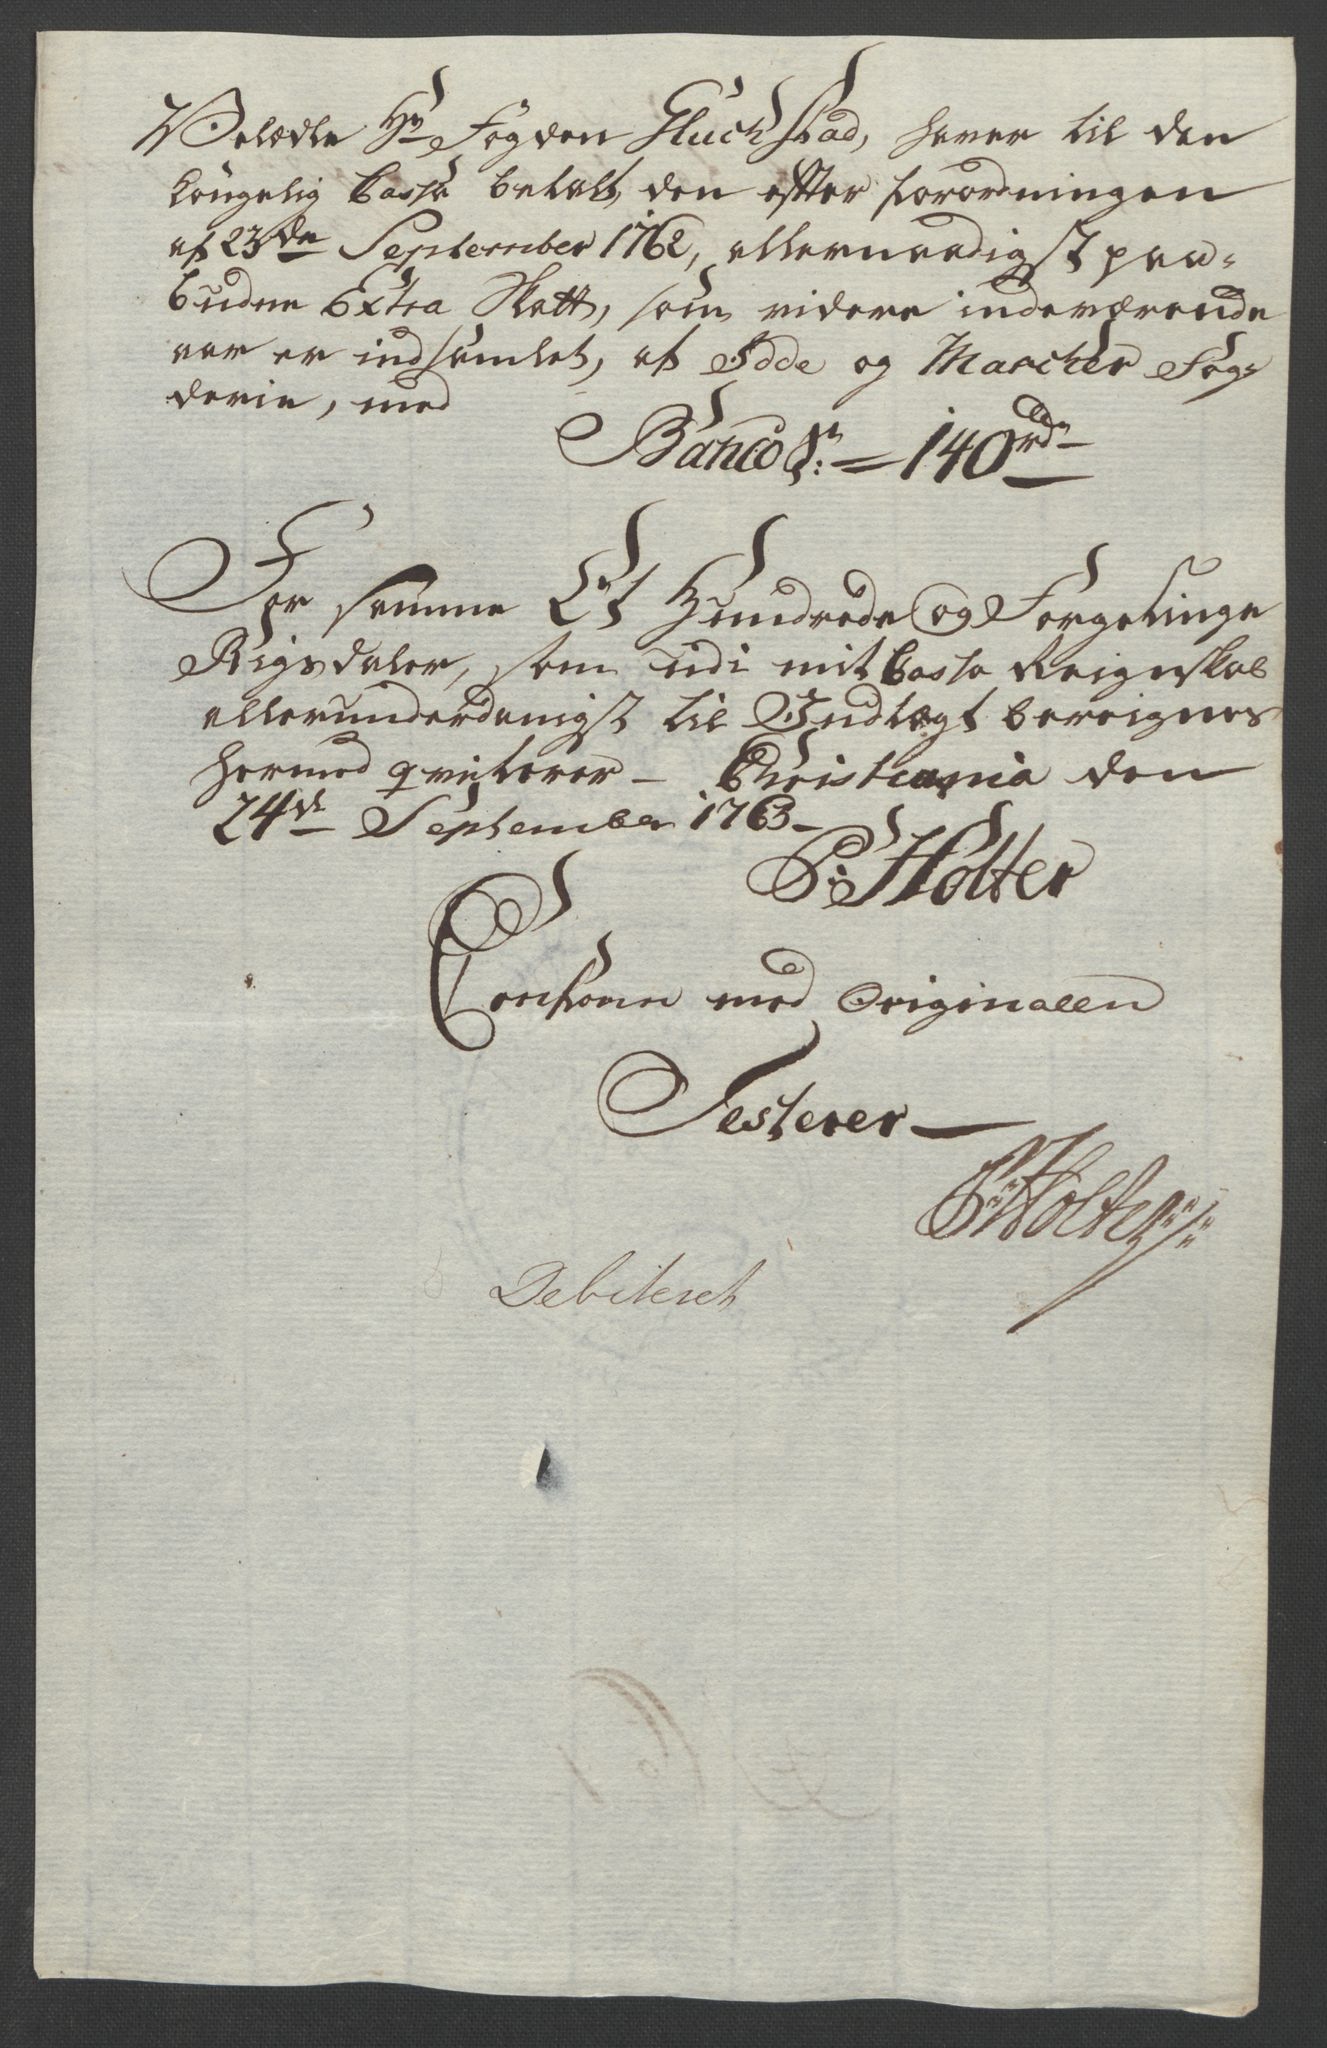 Velædle Hr Fogden Gluchstad, haver til den
kongelig Cassa betalt, den efter forordningen
af 23de September 1762, allernaadigst paa-
budne Extra Skatt, som videre indeværende
aar er indsamlet, af Idde og Marcher Fog-
derie, med
Banco S: = 140 rdr
For samme Et Hundrede og Fyrgetinge
Rigsdaler, som udi mit Cassa Reignskab
allerunderdanigst til Indtægt bereignes
hermed qviterer - Christiania den
24de September 1763 -
P: Holter
Conform med Originalen
Testerer
P: Holter
Debiteret